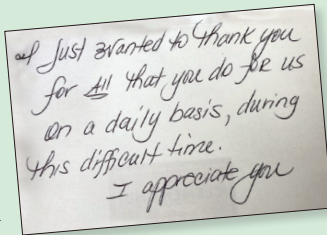 I Just wanted to thank you
for All that you do for us
on a daily basis, during
this difficult time.
I appreciate you